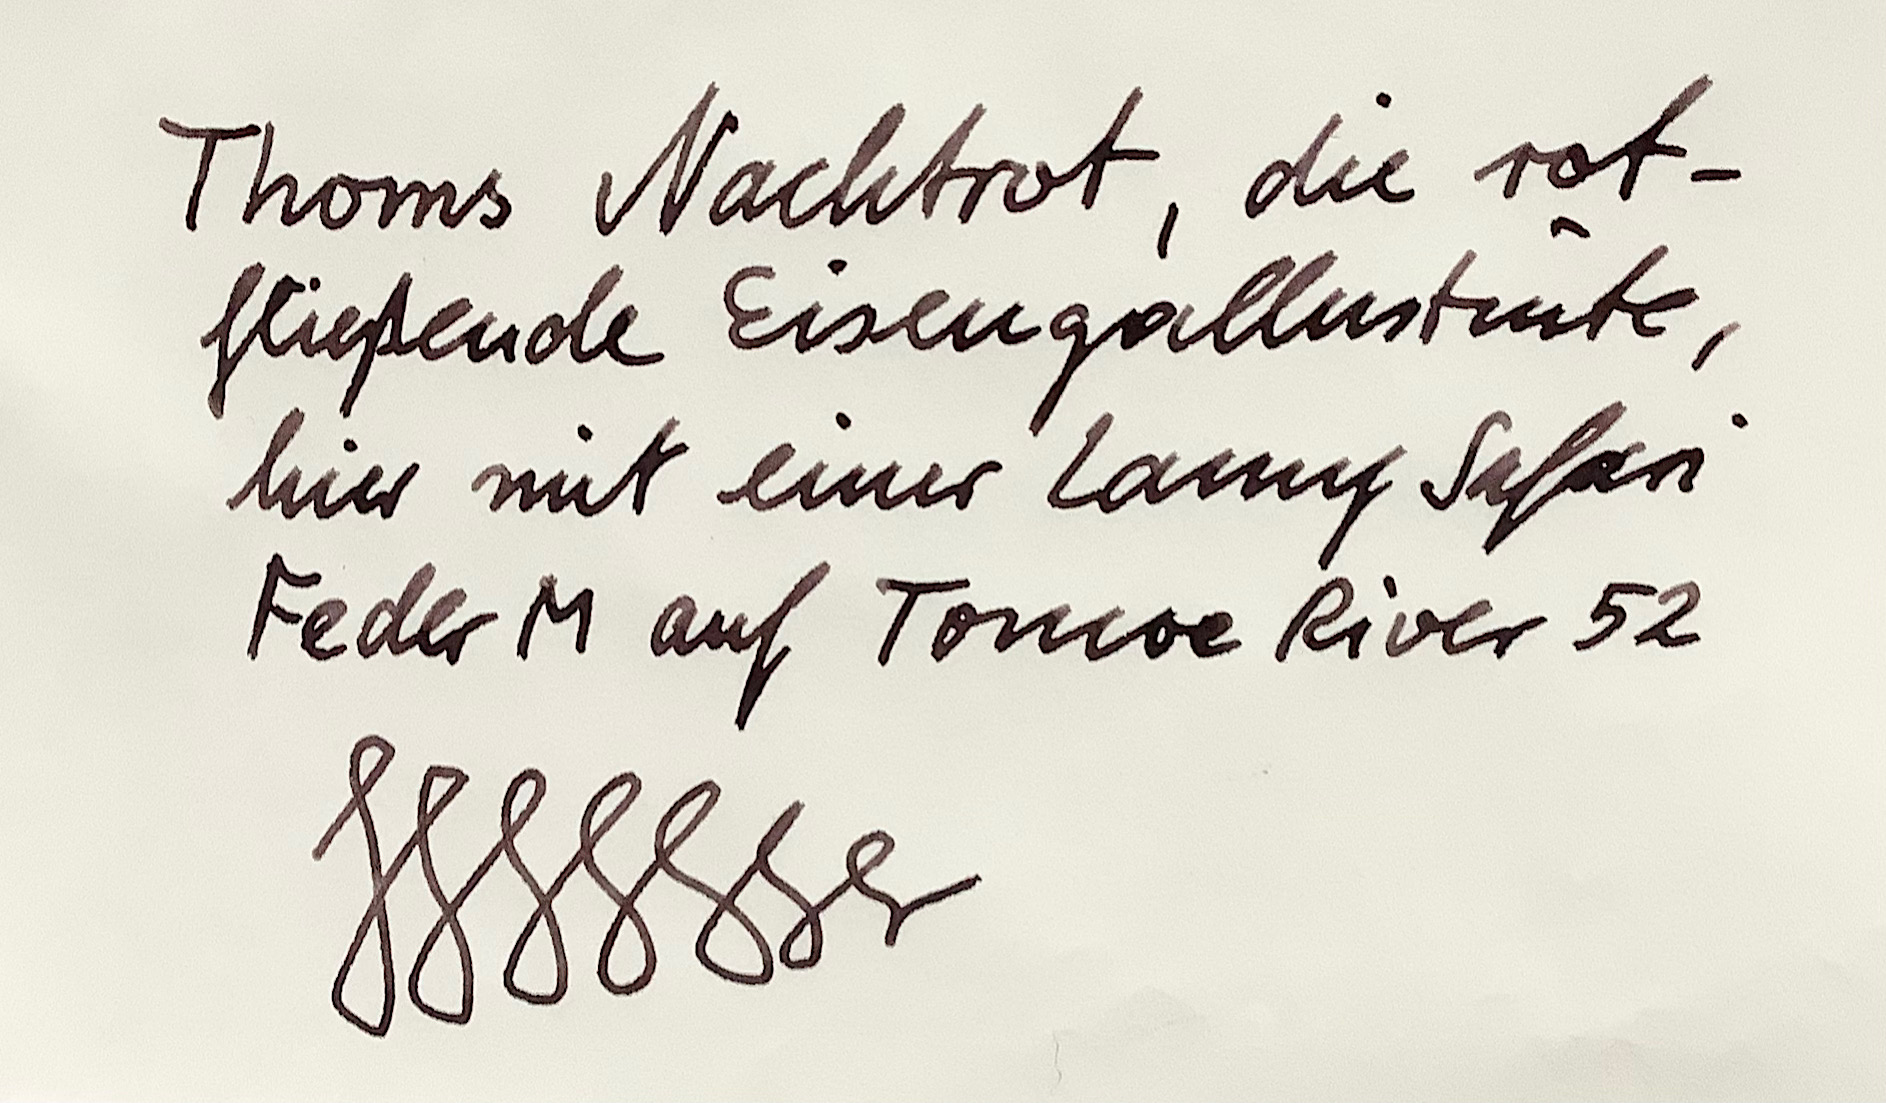 Thoms Nachtrot, die rot-
fließende Eisengallustinte,
hier mit einer Lamy Safari
Feder M auf Tomoe River 52